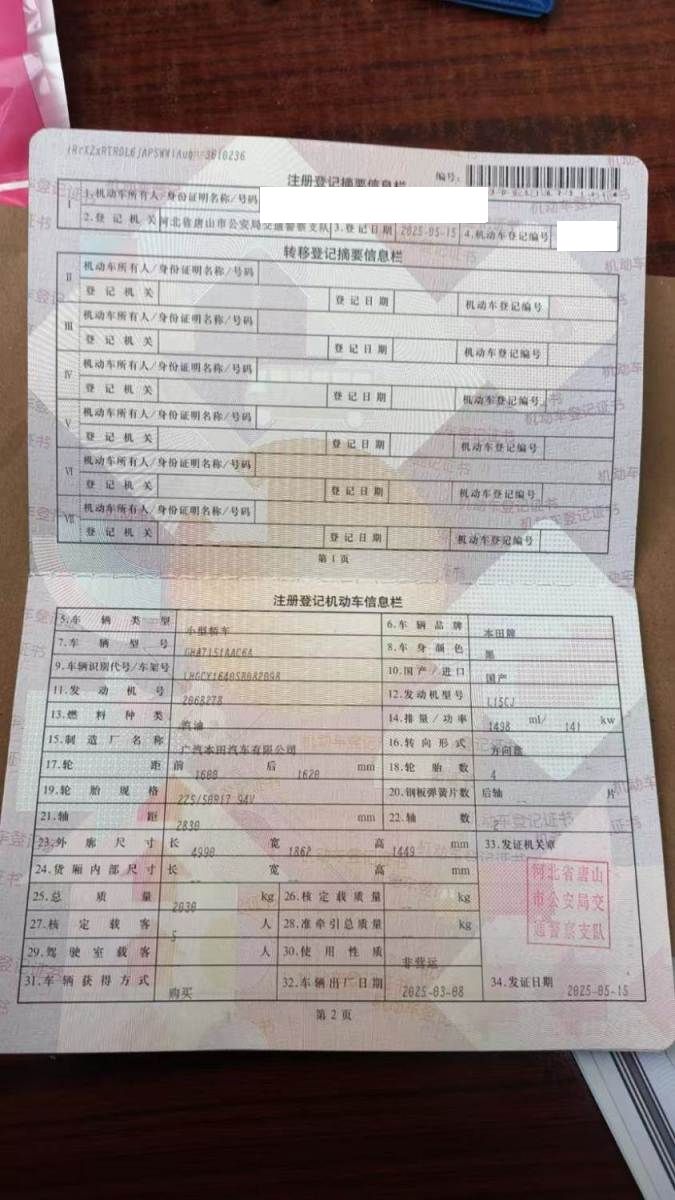 编号:
注册登记摘要信息栏
I 1.机动车所有人/身份证明名称/号码
2.登记机关 河北省唐山市公安局交通警察支队 3.登记日期 2025-05-15 4.机动车登记编号
转移登记摘要信息栏
II 机动车所有人/身份证明名称/号码
登记机关 登记日期 机动车登记编号
III 机动车所有人/身份证明名称/号码
登记机关 登记日期 机动车登记编号
IV 机动车所有人/身份证明名称/号码
登记机关 登记日期 机动车登记编号
V 机动车所有人/身份证明名称/号码
登记机关 登记日期 机动车登记编号
VI 机动车所有人/身份证明名称/号码
登记机关 登记日期 机动车登记编号
VII 机动车所有人/身份证明名称/号码
登记机关 登记日期 机动车登记编号
第1页
注册登记机动车信息栏
5.车辆类型 小型轿车 6.车辆品牌 本田牌
7.车辆型号 GHA7151AAC6A 8.车身颜色 黑
9.车辆识别代号/车架号 10.国产/进口 国产
11.发动机号 2068278 12.发动机型号 L15CJ
13.燃料种类 汽油 14.排量/功率 1498 ml/ 141 kw
15.制造厂名称 广汽本田汽车有限公司 16.转向形式 方向盘
17.轮距 前 1600 后 1620 mm 18.轮胎数 4
19.轮胎规格 225/50R17 94V 20.钢板弹簧片数 后轴 片
21.轴距 2830 mm 22.轴数 2
23.外廓尺寸 长 4990 宽 1862 高 1449 mm 33.发证机关章
24.货厢内部尺寸 长 宽 高 mm
河北省唐山
市公安局交
通警察支队
25.总质量 2030 kg 26.核定载质量 kg
27.核定载客 5 人 28.准牵引总质量 kg
29.驾驶室载客 人 30.使用性质 非营运
31.车辆获得方式 购买 32.车辆出厂日期 2025-03-08 34.发证日期 2025-05-15
第2页